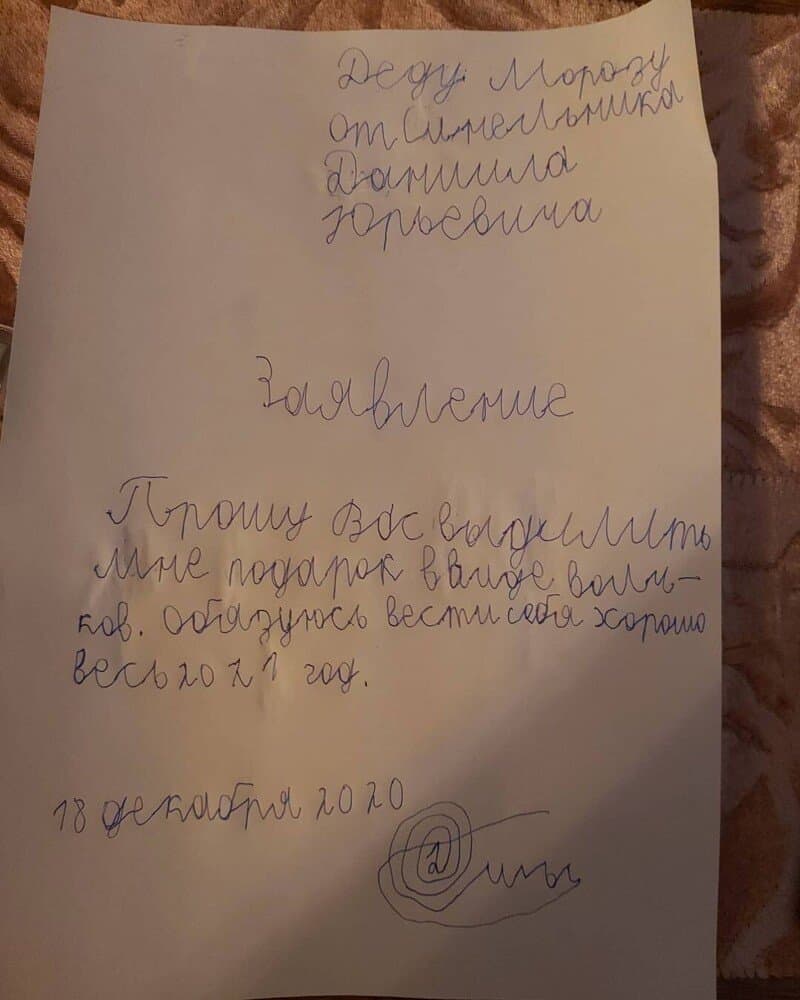 Деду Морозу
от Синельника
Даниила
Юрьевича
Заявление
Прошу Вас выделить
мне подарок в виде
ков. Обязуюсь вести себя хорошо
весь 2021 год.
18 декабря 2020